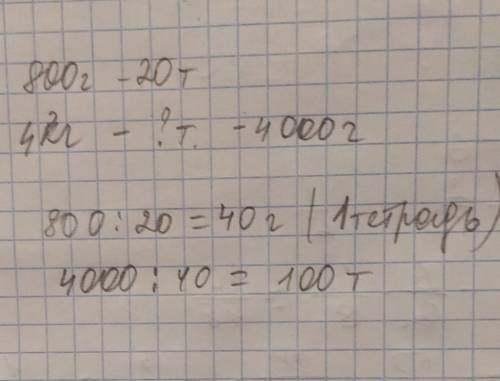 800г - 20т
4кг - ?т. - 4000г
800 : 20 = 40г (1 тетрадь)
4000 : 40 = 100 т